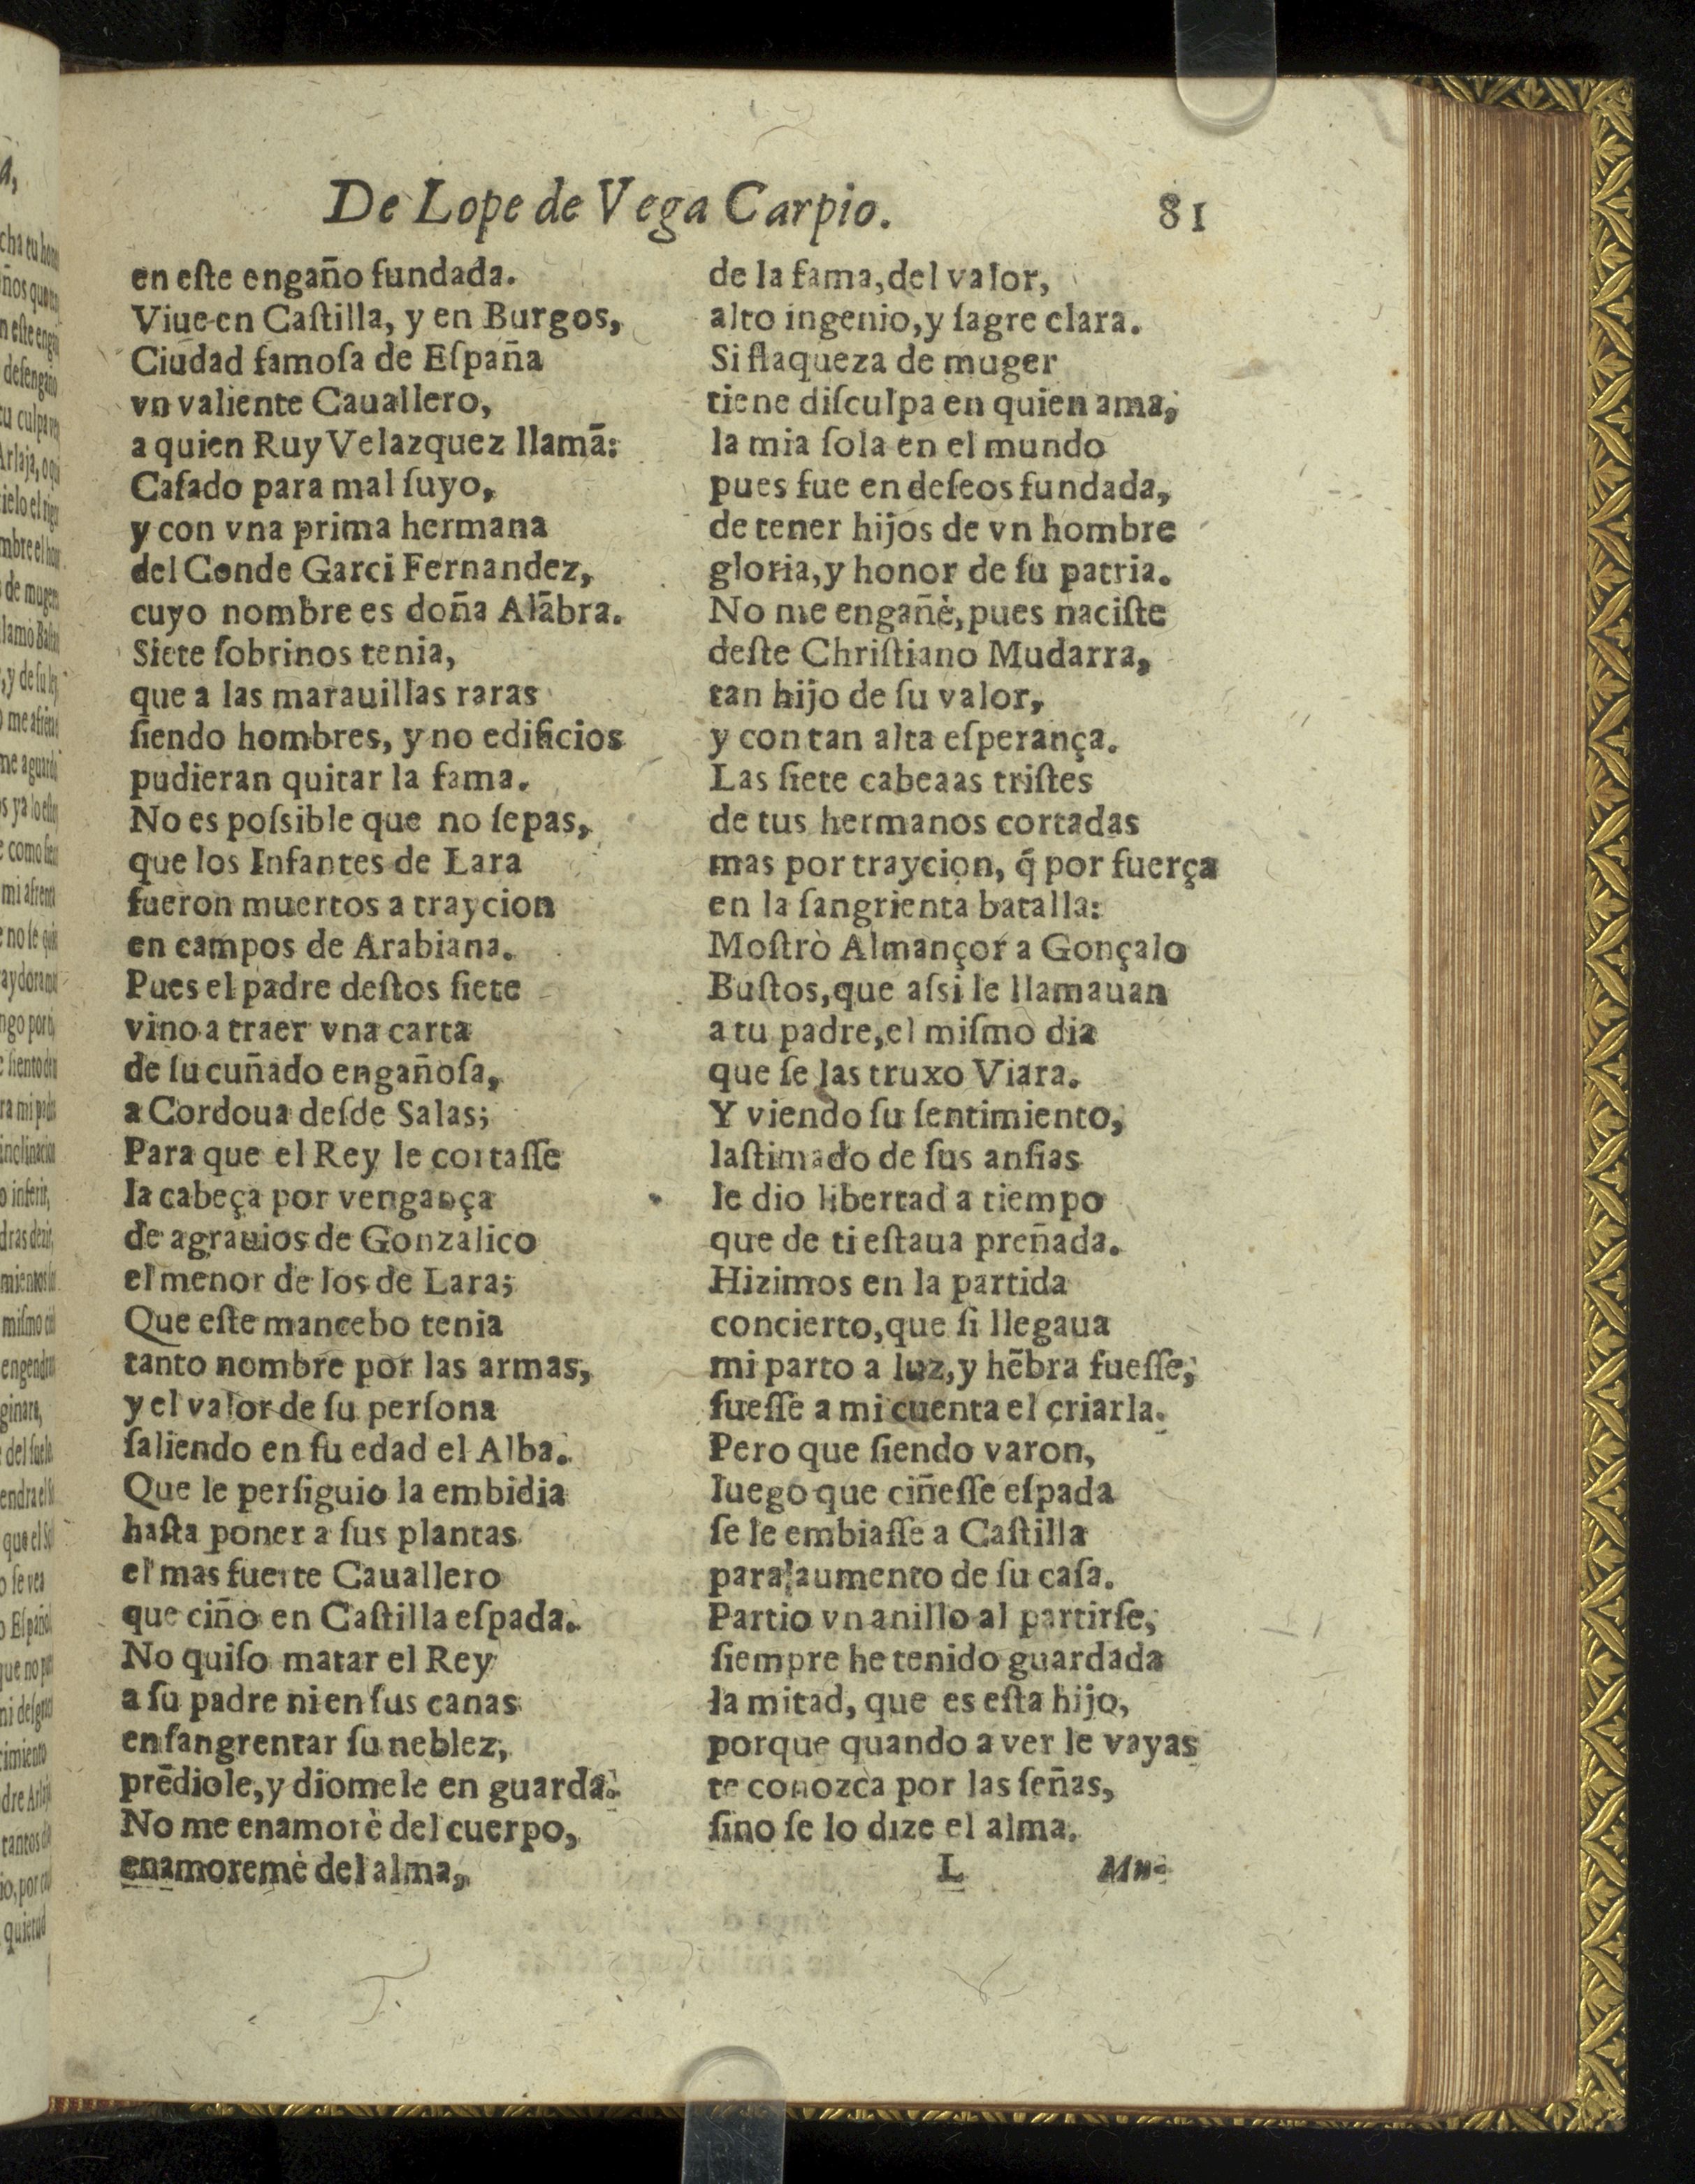 De Lope de Vega Carpio. 81
en eſte engaño fundada.
Viue en Caſtilla, y en Burgos,
Ciudad famoſa de Eſpaña
vn valiente Cauallero,
a quien Ruy Velazquez llamã:
Caſado para mal ſuyo,
y con vna prima hermana
del Conde Garci Fernandez,
cuyo nombre es doña Alãbra.
Siete ſobrinos tenia,
que a las marauillas raras
ſiendo hombres, y no edificios
pudieran quitar la fama.
No es poſsible que no ſepas,
que los Infantes de Lara
fueron muertos a traycion
en campos de Arabiana.
Pues el padre deſtos ſiete
vino a traer vna carta
de ſu cuñado engañoſa,
a Cordoua deſde Salas;
Para que el Rey le cortaſſe
la cabeça por vengança
de agrauios de Gonzalico
el menor de los de Lara;
Que eſte mancebo tenia
tanto nombre por las armas,
y el valor de ſu perſona
ſaliendo en ſu edad el Alba.
Que le perſiguio la embidia
haſta poner a ſus plantas
el mas fuerte Cauallero
que ciño en Caſtilla eſpada.
No quiſo matar el Rey
a ſu padre ni en ſus canas
enſangrentar ſu neblez,
prẽdiole, y diomele en guarda.
No me enamorè del cuerpo,
enamoremè del alma,
de la fama, del valor,
alto ingenio, y ſagre clara.
Si flaqueza de muger
tiene diſculpa en quien ama,
la mia ſola en el mundo
pues fue en deſeos fundada,
de tener hijos de vn hombre
gloria, y honor de ſu patria.
No me engañè, pues naciſte
deſte Chriſtiano Mudarra,
tan hijo de ſu valor,
y con tan alta eſperança.
Las ſiete cabeaas triſtes
de tus hermanos cortadas
mas por traycion, q̃ por fuerça
en la ſangrienta batalla:
Moſtrò Almançor a Gonçalo
Buſtos, que aſsi le llamauan
a tu padre, el miſmo dia
que ſe las truxo Viara.
Y viendo ſu ſentimiento,
laſtimado de ſus anſias
le dio libertad a tiempo
que de ti eſtaua preñada.
Hizimos en la partida
concierto, que ſi llegaua
mi parto a luz, y hẽbra fueſſe,
fueſſe a mi cuenta el criarla.
Pero que ſiendo varon,
luego que ciñeſſe eſpada
ſe le embiaſſe a Caſtilla
para aumento de ſu caſa.
Partio vn anillo al partirſe,
ſiempre he tenido guardada
la mitad, que es eſta hijo,
porque quando a ver le vayas
te conozca por las ſeñas,
ſino ſe lo dize el alma.
L Mu-